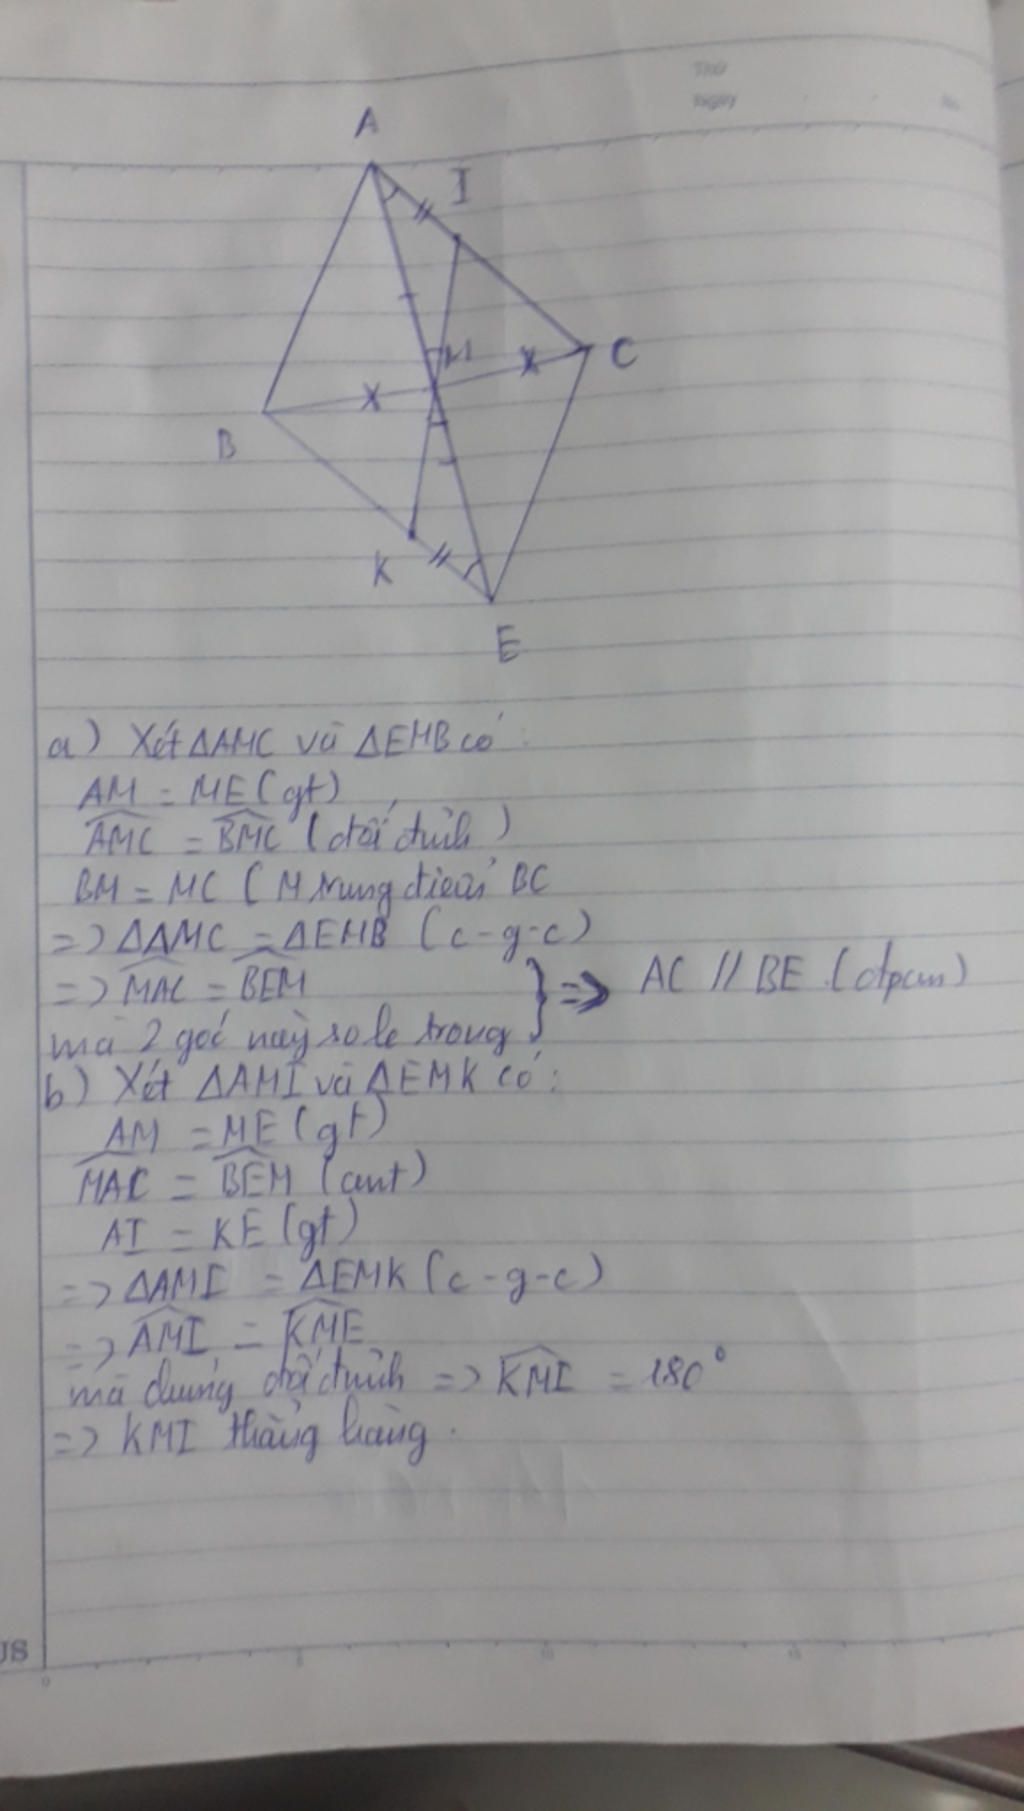 Thứ
Ngày
No
A
I
M
C
B
K
E
a) Xét ΔAMC và ΔEMB có:
AM = ME (gt)
\widehat{AMC} = \widehat{BMC} (đối đỉnh)
BM = MC ( M trung điểm BC
=> ΔAMC = ΔEMB (c-g-c)
=> \widehat{MAC} = \widehat{BEM}
mà 2 góc này so le trong } => AC // BE (đpcm)
b) Xét ΔAMI và ΔEMK có:
AM = ME (gt)
\widehat{MAC} = \widehat{BEM} (cmt)
AI = KE (gt)
=> ΔAMI = ΔEMK (c-g-c)
=> \widehat{AMI} = \widehat{KME}
mà chúng đối đỉnh => \widehat{KMI} = 180°
=> KMI thẳng hàng.
US
0
5
10
15